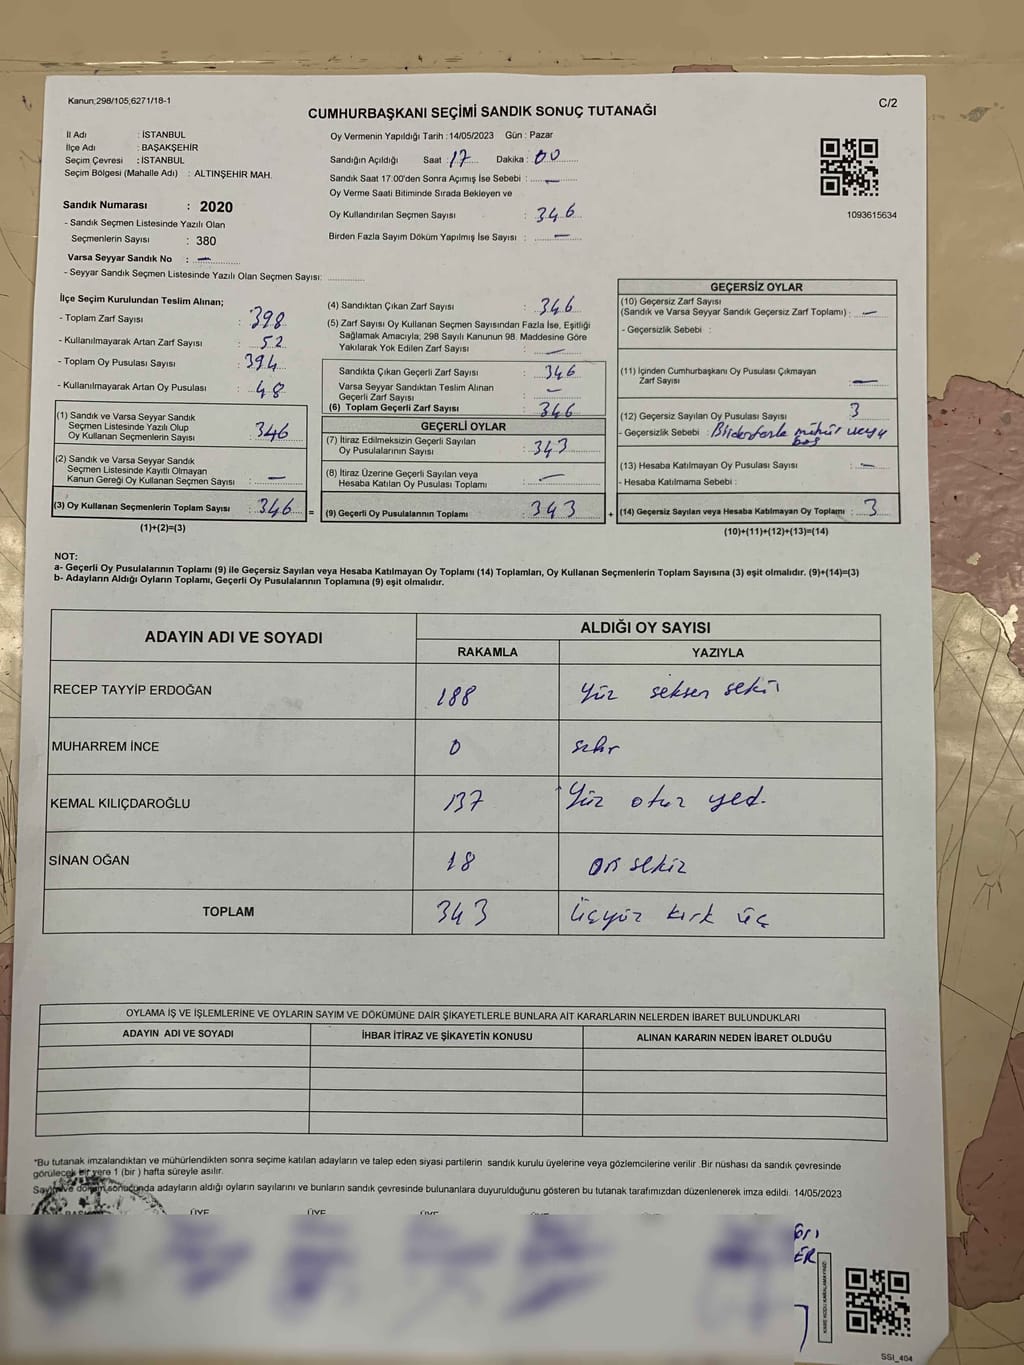 Kanun;298/105,6271/18-1
C/2
CUMHURBAŞKANI SEÇİMİ SANDIK SONUÇ TUTANAĞI
İl Adı : İSTANBUL
İlçe Adı : BAŞAKŞEHİR
Seçim Çevresi : İSTANBUL
Seçim Bölgesi (Mahalle Adı) : ALTINŞEHİR MAH.
Sandık Numarası : 2020
- Sandık Seçmen Listesinde Yazılı Olan
Seçmenlerin Sayısı : 380
Varsa Seyyar Sandık No : —
- Seyyar Sandık Seçmen Listesinde Yazılı Olan Seçmen Sayısı:
Oy Vermenin Yapıldığı Tarih : 14/05/2023 Gün : Pazar
Sandığın Açıldığı Saat : 17 Dakika : 00
Sandık Saat 17:00'den Sonra Açımış İse Sebebi : —
Oy Verme Saati Bitiminde Sırada Bekleyen ve
Oy Kullandırılan Seçmen Sayısı : 346
Birden Fazla Sayım Döküm Yapılmış İse Sayısı : —
1093615634
İlçe Seçim Kurulundan Teslim Alınan;
- Toplam Zarf Sayısı : 398
- Kullanılmayarak Artan Zarf Sayısı : 52
- Toplam Oy Pusulası Sayısı : 394
- Kullanılmayarak Artan Oy Pusulası : 48
(1) Sandık ve Varsa Seyyar Sandık
Seçmen Listesinde Yazılı Olup
Oy Kullanan Seçmenlerin Sayısı : 346
(2) Sandık ve Varsa Seyyar Sandık
Seçmen Listesinde Kayıtlı Olmayan
Kanun Gereği Oy Kullanan Seçmen Sayısı : —
(3) Oy Kullanan Seçmenlerin Toplam Sayısı : 346 =
(1)+(2)=(3)
(4) Sandıktan Çıkan Zarf Sayısı : 346
(5) Zarf Sayısı Oy Kullanan Seçmen Sayısından Fazla İse, Eşitliği
Sağlamak Amacıyla; 298 Sayılı Kanunun 98. Maddesine Göre
Yakılarak Yok Edilen Zarf Sayısı : —
Sandıkta Çıkan Geçerli Zarf Sayısı : 346
Varsa Seyyar Sandıktan Teslim Alınan
Geçerli Zarf Sayısı : —
(6) Toplam Geçerli Zarf Sayısı : 346
GEÇERLİ OYLAR
(7) İtiraz Edilmeksizin Geçerli Sayılan
Oy Pusulalarının Sayısı : 343
(8) İtiraz Üzerine Geçerli Sayılan veya
Hesaba Katılan Oy Pusulası Toplamı : —
(9) Geçerli Oy Pusulalarının Toplamı : 343 +
GEÇERSİZ OYLAR
(10) Geçersiz Zarf Sayısı
(Sandık ve Varsa Seyyar Sandık Geçersiz Zarf Toplamı) : —
- Geçersizlik Sebebi :
(11) İçinden Cumhurbaşkanı Oy Pusulası Çıkmayan
Zarf Sayısı : —
(12) Geçersiz Sayılan Oy Pusulası Sayısı : 3
- Geçersizlik Sebebi : mühür veya
boş
(13) Hesaba Katılmayan Oy Pusulası Sayısı : —
- Hesaba Katılmama Sebebi :
(14) Geçersiz Sayılan veya Hesaba Katılmayan Oy Toplamı : 3
(10)+(11)+(12)+(13)=(14)
NOT:
a- Geçerli Oy Pusulalarının Toplamı (9) ile Geçersiz Sayılan veya Hesaba Katılmayan Oy Toplamı (14) Toplamları, Oy Kullanan Seçmenlerin Toplam Sayısına (3) eşit olmalıdır. (9)+(14)=(3)
b- Adayların Aldığı Oyların Toplamı, Geçerli Oy Pusulalarının Toplamına (9) eşit olmalıdır.
ADAYIN ADI VE SOYADI
ALDIĞI OY SAYISI
RAKAMLA YAZIYLA
RECEP TAYYİP ERDOĞAN 188 Yüz seksen sekiz
MUHARREM İNCE 0 sıfır
KEMAL KILIÇDAROĞLU 137 Yüz otuz yedi
SİNAN OĞAN 18 on sekiz
TOPLAM 343 Üçyüz kırk üç
OYLAMA İŞ VE İŞLEMLERİNE VE OYLARIN SAYIM VE DÖKÜMÜNE DAİR ŞİKAYETLERLE BUNLARA AİT KARARLARIN NELERDEN İBARET BULUNDUKLARI
ADAYIN ADI VE SOYADI İHBAR İTİRAZ VE ŞİKAYETİN KONUSU ALINAN KARARIN NEDEN İBARET OLDUĞU
*Bu tutanak imzalandıktan ve mühürlendikten sonra seçime katılan adayların ve talep eden siyasi partilerin sandık kurulu üyelerine veya gözlemcilerine verilir .Bir nüshası da sandık çevresinde
görülecek bir yere 1 (bir ) hafta süreyle asılır.
Sayım ve döküm sonucunda adayların aldığı oyların sayılarını ve bunların sandık çevresinde bulunanlara duyurulduğunu gösteren bu tutanak tarafımızdan düzenlenerek imza edildi. 14/05/2023
ÜYE ÜYE ÜYE
KARE KODU KARALAMAYINIZ!
SSI_404